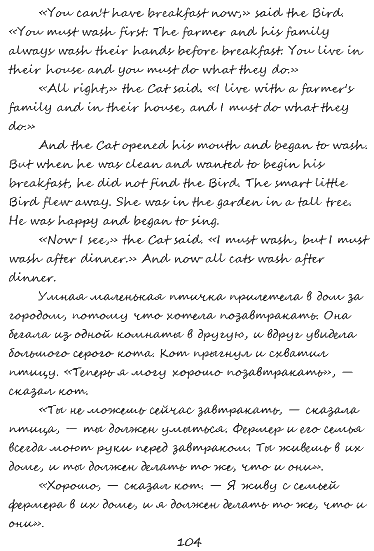 «You can't have breakfast now,» said the Bird.
«You must wash first. The farmer and his family
always wash their hands before breakfast. You live in
their house and you must do what they do.»
«All right,» the Cat said. «I live with a farmer's
family and in their house, and I must do what they
do.»
And the Cat opened his mouth and began to wash.
But when he was clean and wanted to begin his
breakfast, he did not find the Bird. The smart little
Bird flew away. She was in the garden in a tall tree.
He was happy and began to sing.
«Now I see,» the Cat said. «I must wash, but I must
wash after dinner.» And now all cats wash after
dinner.
Умная маленькая птичка прилетела в дом за
городом, потому что хотела позавтракать. Она
бегала из одной комнаты в другую, и вдруг увидела
большого серого кота. Кот прыгнул и схватил
птицу. «Теперь я могу хорошо позавтракать», —
сказал кот.
«Ты не можешь сейчас завтракать, — сказала
птица, — ты должен умыться. Фермер и его семья
всегда моют руки перед завтраком. Ты живешь в их
доме, и ты должен делать то же, что и они».
«Хорошо, — сказал кот. — Я живу с семьей
фермера в их доме, и я должен делать то же, что и
они».
104